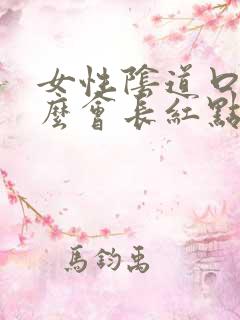 女性陰道口
麼會長紅點
馬鈞禹